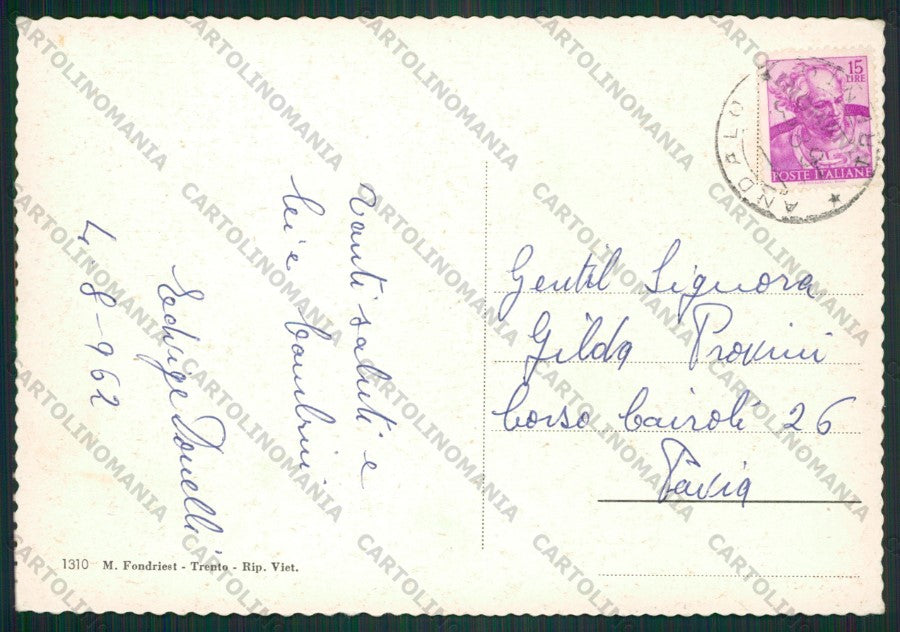 Tanti saluti e
lei e bambini
Edvige Donelli
4-8-962
Gentil Signora
Gilda Provini
Corso Cairoli 26
Pavia
15
LIRE
POSTE ITALIANE
ANDALO
1310 M. Fondriest - Trento - Rip. Viet.
CARTOLINOMANIA